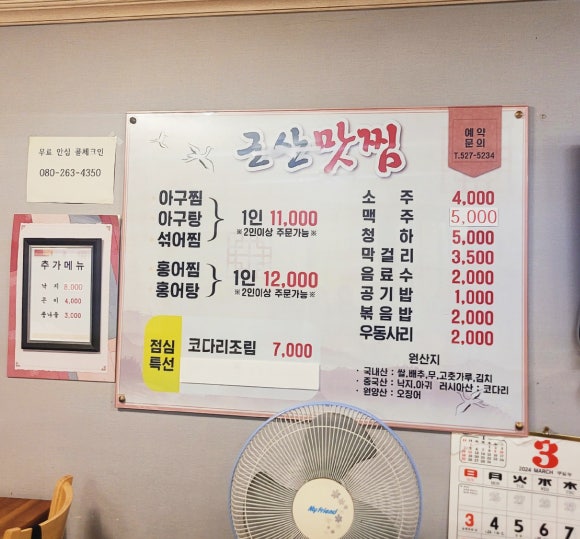 무료 안심 콜체크인
080-263-4350
추가메뉴
낙 지 8,000
곤 이 4,000
콩나물 3,000
군산맛찜
예약
문의
T.527-5234
아구찜
아구탕
섞어찜
1인 11,000
※2인이상 주문가능※
홍어찜
홍어탕
1인 12,000
※2인이상 주문가능※
점심
특선
코다리조림 7,000
소 주 4,000
맥 주 5,000
청 하 5,000
막걸리 3,500
음료수 2,000
공기밥 1,000
볶음밥 2,000
우동사리 2,000
원산지
· 국내산 : 쌀,배추,무,고춧가루,김치
· 중국산 : 낙지,아귀 러시아산 : 코다리
· 원양산 : 오징어
My Friend
3
2024 MARCH
日 月 火 水 木
3 4 5 6 7